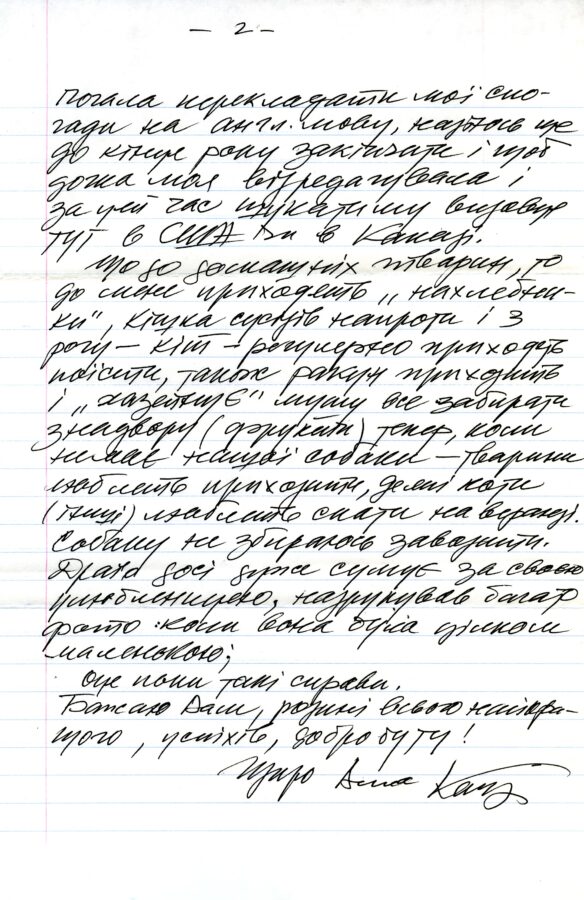 – 2 –
почала перекладати мої спо-
гади на англ. мову, надіюсь ще
до кінця року закінчити і щоб
дочка моя відредагувала і
за цей час шукатиму видавця
тут в США чи в Канаді.
Щодо домашніх тварин, то
до мене приходять „нахлебни-
ки", кішка сусідів напроти і з
рогу – кіт – регулярно приходять
поїсти, також ракун приходить
і „хазяйнує" мушу все забирати
знадвору (фрукти) тепер, коли
немає нашої собаки – тварини
люблять приходити, деякі коти
(інші) люблять спати на веранді.
Собаку не збираюсь заводити.
досі дуже сумує за своєю
улюбленицею, надрукував багато
фото коли вона була цілком
маленькою;
Оце поки такі справи.
Бажаю Вам, родині всього найкра-
щого, успіхів, добробуту!
Щиро Анна